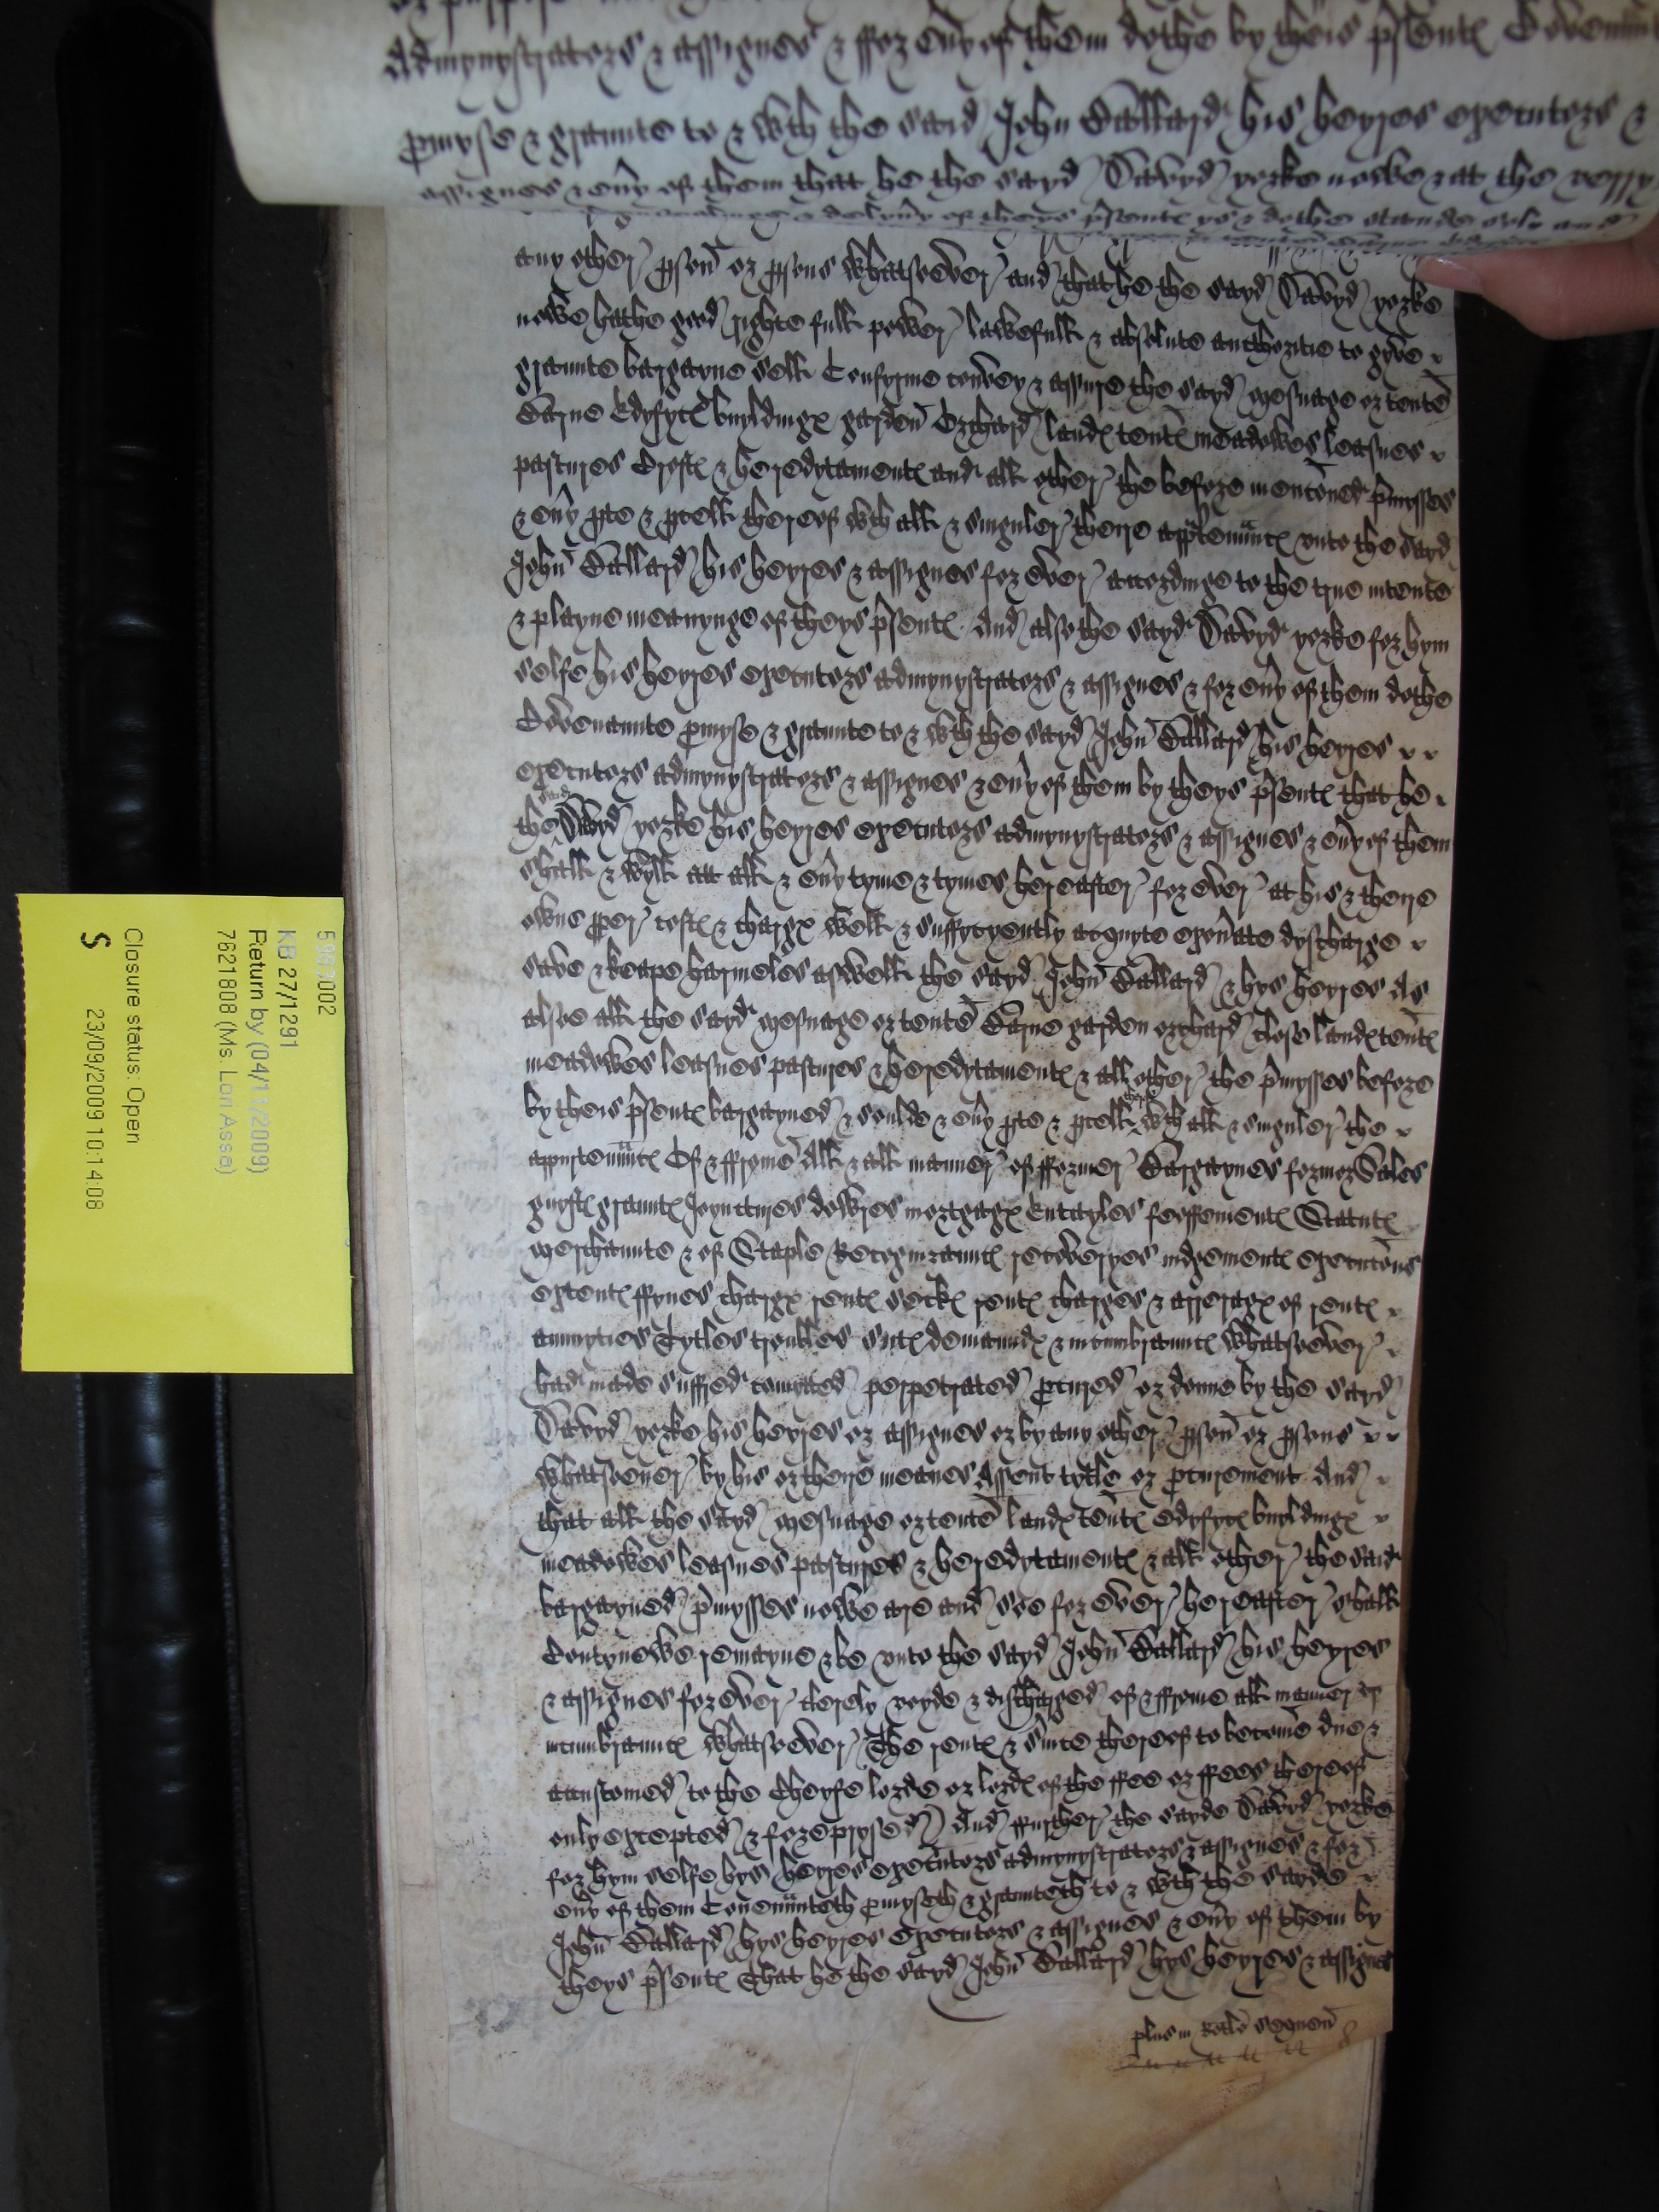 Admynystrators & assignes & ffor ev̄y of them dothe by theis p̄sentꝭ Coven
ꝓmyse & graunte to & wth the said John Ballard his heyres executors &
assignes & ev̄y of them that he the sayd Davyd yorke nowe & at the verry
delyv̄y of theys p̄sentꝭ ys & dothe stande sole and
any other ꝑson or ꝑsons whatsoever and that he the sayd Davyd yorke
nowe hathe good righte full power lawefull & absolute authoritie to gyve
graunte bargayne sell Confyrme convey & assure the sayd mesuage or tente
Barne Edyfycꝭ buyldingꝭ garden Orchard landꝭ tentꝭ meadowes leasues
pastures Croftꝭ & heredytamentꝭ and all other the before mentoned p̄mysses
& ev̄y ꝑte & ꝑcell thereof wth all & singuler theire apptennͣncꝭ unto the sayd
John Ballard his heyres & assignes for ever accordinge to the true intente
& playne meanynge of theys p̄sentꝭ And also the sayd Davyd yorke for hym
selfe his heyres executors admynystrators & assignes & for ev̄y of them dothe
Covenaunte ꝓmyse & graunte to & wth the sayd John Ballard his heyres
executors admynystrators & assignes & ev̄y of them by theys p̄sentꝭ that he
the said Davyd yorke his heyres executors admynystrators & assignes & ev̄y of them
shall & wyll att all & ev̄y tyme & tymes hereafter for ever at his & theire
owne ꝓper costꝭ & chargꝭ well & suffycyently acquyte exon̄ate dyscharge
save & keape harmeles aswell the sayd John Ballard & hys heyres As
also all the sayd mesuage or tente Barne garden orchard close landꝭ tentꝭ
meadowes leasues pastures & heredytamentꝭ & all other the p̄mysses before
by theis p̄sentꝭ bargayned & soulde & ev̄y ꝑte & ꝑcell thereof wth all & singuler the
appurtennͣncꝭ Of & ffrome All & all manner of fformer Bargaynes former Sales
guyftꝭ grauntꝭ Joyntures dowres mortgagꝭ Entayles feoffementꝭ Statutꝭ
merchaunte & of Staple Recognizauncꝭ recoveryes iudgementꝭ executons
extentꝭ ffynes chargꝭ rentꝭ seckꝭ rentꝭ charges & arreragꝭ of rentꝭ
annuyties Tytles troubles sutꝭ demaundꝭ & incumbrauncꝭ whatsoever
had made suffred comytted perpetrated ꝓcured or donne by the sayd
Davyd yorke his heyres or assignes or by any other ꝑson or ꝑsons
whatsoever by his or theire meanes Assent tytle or ꝓcurement And
that all the sayd mesuage or tente landꝭ tentꝭ edyfycꝭ buyldingꝭ
meadowes leasues pastures & heredytamentꝭ & all other the said
bargayned p̄mysses nowe are and soe for ever hereafter shall
Contynewe remayne & be unto the sayd John Ballard his heyres
& assignes for ever clerely voyde & discharged of & ffrome all manner of
incumbrauncꝭ whatsoever The rentꝭ & s̄vice thereof to become due &
accustomed to the Cheyfe lorde or lordꝭ of the ffee or ffees thereof
only excepted & foreprysed) And ffurther the sayde Davyd yorke
for hym selfe hys heyres executors admynystrators & assignes & for
ev̄y of them Covenͣnteth ꝓmyseth & graunteth to & wth the sayde
John Ballard hys heyres executors & assignes & ev̄y of them by
theys p̄sentꝭ That he the sayd John Ballard hys heyres & assignes
plus in Rotlo sequen
5983002
KB 27/1291
Return by (04/11/2009)
7621808 (Ms. Lori Assa)
Closure status: Open
S 23/09/2009 10:14:08